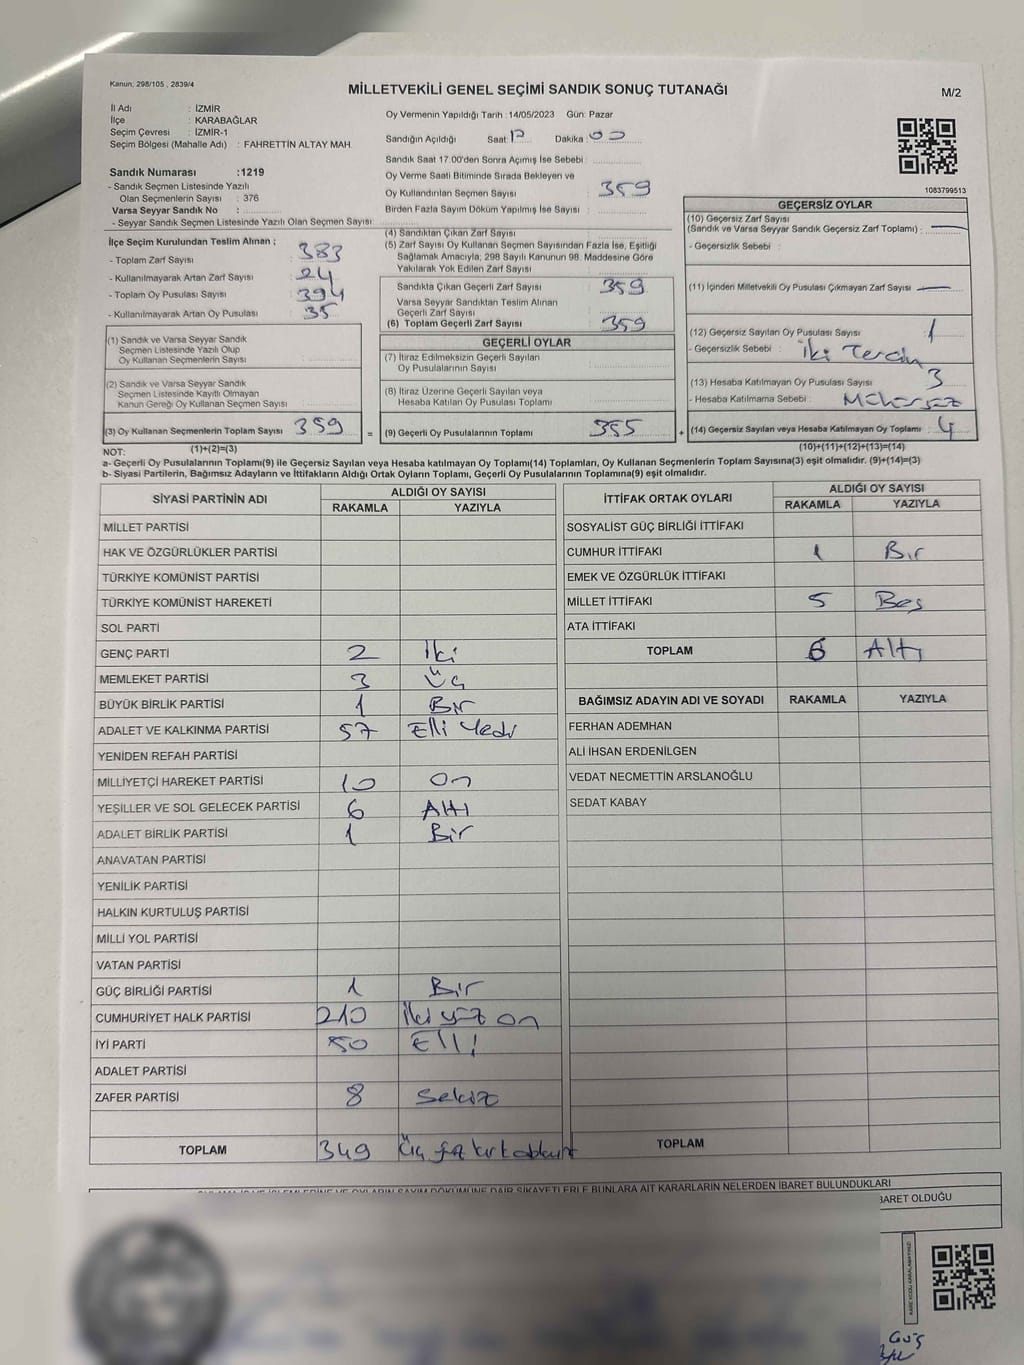 Kanun; 298/105 , 2839/4
MİLLETVEKİLİ GENEL SEÇİMİ SANDIK SONUÇ TUTANAĞI
M/2
İl Adı : İZMİR
İlçe : KARABAĞLAR
Seçim Çevresi : İZMİR-1
Seçim Bölgesi (Mahalle Adı) : FAHRETTİN ALTAY MAH.
Oy Vermenin Yapıldığı Tarih :14/05/2023 Gün: Pazar
Sandığın Açıldığı Saat 17 Dakika 00
Sandık Saat 17.00'den Sonra Açımış İse Sebebi :
Oy Verme Saati Bitiminde Sırada Bekleyen ve
Oy Kullandırılan Seçmen Sayısı : 359
Birden Fazla Sayım Döküm Yapılmış İse Sayısı :
1083799513
Sandık Numarası :1219
- Sandık Seçmen Listesinde Yazılı
Olan Seçmenlerin Sayısı : 376
Varsa Seyyar Sandık No :
- Seyyar Sandık Seçmen Listesinde Yazılı Olan Seçmen Sayısı:
İlçe Seçim Kurulundan Teslim Alınan ;
- Toplam Zarf Sayısı : 383
- Kullanılmayarak Artan Zarf Sayısı : 24
- Toplam Oy Pusulası Sayısı : 394
- Kullanılmayarak Artan Oy Pusulası : 35
(1) Sandık ve Varsa Seyyar Sandık
Seçmen Listesinde Yazılı Olup
Oy Kullanan Seçmenlerin Sayısı
(2) Sandık ve Varsa Seyyar Sandık
Seçmen Listesinde Kayıtlı Olmayan
Kanun Gereği Oy Kullanan Seçmen Sayısı
(3) Oy Kullanan Seçmenlerin Toplam Sayısı 359 =
(1)+(2)=(3)
(4) Sandıktan Çıkan Zarf Sayısı :
(5) Zarf Sayısı Oy Kullanan Seçmen Sayısından Fazla İse, Eşitliği
Sağlamak Amacıyla, 298 Sayılı Kanunun 98. Maddesine Göre
Yakılarak Yok Edilen Zarf Sayısı :
Sandıkta Çıkan Geçerli Zarf Sayısı : 359
Varsa Seyyar Sandıktan Teslim Alınan
Geçerli Zarf Sayısı :
(6) Toplam Geçerli Zarf Sayısı : 359
GEÇERLİ OYLAR
(7) İtiraz Edilmeksizin Geçerli Sayılan
Oy Pusulalarının Sayısı
(8) İtiraz Üzerine Geçerli Sayılan veya
Hesaba Katılan Oy Pusulası Toplamı
(9) Geçerli Oy Pusulalarının Toplamı 355 +
GEÇERSİZ OYLAR
(10) Geçersiz Zarf Sayısı
(Sandık ve Varsa Seyyar Sandık Geçersiz Zarf Toplamı) : —
- Geçersizlik Sebebi :
(11) İçinden Milletvekili Oy Pusulası Çıkmayan Zarf Sayısı : —
(12) Geçersiz Sayılan Oy Pusulası Sayısı : 1
- Geçersizlik Sebebi : İki Tercih
(13) Hesaba Katılmayan Oy Pusulası Sayısı : 3
- Hesaba Katılmama Sebebi : Mühürsüz
(14) Geçersiz Sayılan veya Hesaba Katılmayan Oy Toplamı : 4
(10)+(11)+(12)+(13)=(14)
NOT:
a- Geçerli Oy Pusulalarının Toplamı(9) ile Geçersiz Sayılan veya Hesaba katılmayan Oy Toplamı(14) Toplamları, Oy Kullanan Seçmenlerin Toplam Sayısına(3) eşit olmalıdır. (9)+(14)=(3)
b- Siyasi Partilerin, Bağımsız Adayların ve İttifakların Aldığı Ortak Oyların Toplamı, Geçerli Oy Pusulalarının Toplamına(9) eşit olmalıdır.
SİYASİ PARTİNİN ADI ALDIĞI OY SAYISI
RAKAMLA YAZIYLA
MİLLET PARTİSİ
HAK VE ÖZGÜRLÜKLER PARTİSİ
TÜRKİYE KOMÜNİST PARTİSİ
TÜRKİYE KOMÜNİST HAREKETİ
SOL PARTİ
GENÇ PARTİ 2 İki
MEMLEKET PARTİSİ 3 Üç
BÜYÜK BİRLİK PARTİSİ 1 Bir
ADALET VE KALKINMA PARTİSİ 57 Elli Yedi
YENİDEN REFAH PARTİSİ
MİLLİYETÇİ HAREKET PARTİSİ 10 On
YEŞİLLER VE SOL GELECEK PARTİSİ 6 Altı
ADALET BİRLİK PARTİSİ 1 Bir
ANAVATAN PARTİSİ
YENİLİK PARTİSİ
HALKIN KURTULUŞ PARTİSİ
MİLLİ YOL PARTİSİ
VATAN PARTİSİ
GÜÇ BİRLİĞİ PARTİSİ 1 Bir
CUMHURİYET HALK PARTİSİ 210 İki yüz on
İYİ PARTİ 50 Elli
ADALET PARTİSİ
ZAFER PARTİSİ 8 Sekiz
TOPLAM 349 Üç yüz kırk
İTTİFAK ORTAK OYLARI ALDIĞI OY SAYISI
RAKAMLA YAZIYLA
SOSYALİST GÜÇ BİRLİĞİ İTTİFAKI
CUMHUR İTTİFAKI 1 Bir
EMEK VE ÖZGÜRLÜK İTTİFAKI
MİLLET İTTİFAKI 5 Beş
ATA İTTİFAKI
TOPLAM 6 Altı
BAĞIMSIZ ADAYIN ADI VE SOYADI RAKAMLA YAZIYLA
FERHAN ADEMHAN
ALİ İHSAN ERDENİLGEN
VEDAT NECMETTİN ARSLANOĞLU
SEDAT KABAY
TOPLAM
SAYIM DÖKÜMÜNE DAİR ŞİKAYETLERLE BUNLARA AİT KARARLARIN NELERDEN İBARET BULUNDUKLARI
BARET OLDUĞU